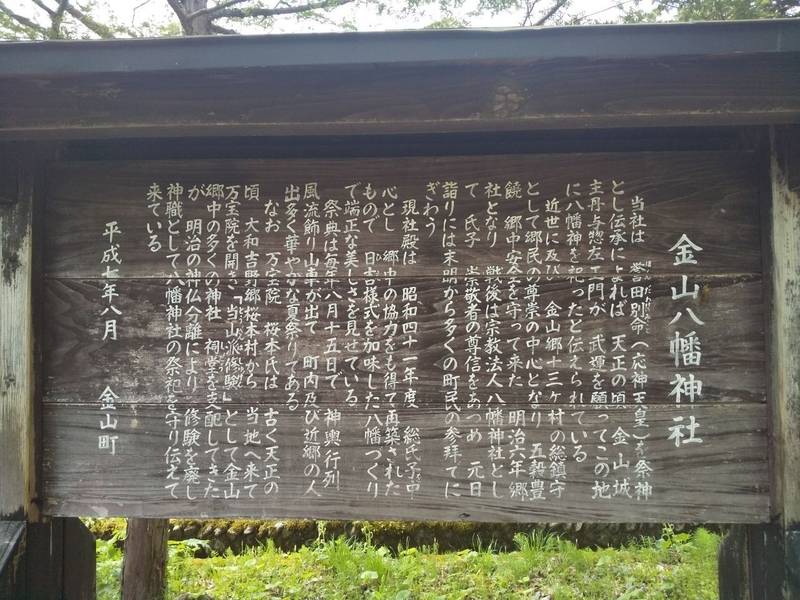 金山八幡神社
当社は 誉田別命(応神天皇)を祭神
とし伝承によれば 天正の頃 金山城
主丹与惣左エ門が 武運を願ってこの地
に八幡神を祀ったと伝えられている
近世に及び 金山郷十三ヶ村の総鎮守
として郷民の尊崇の中心となり 五穀豊
饒 郷中安全を守って来た 明治六年郷
社となり 戦後は宗教法人八幡神社とし
て 氏子 崇敬者の尊信をあつめ 元日
詣りには未明から多くの町民の参拜でに
ぎわう
現社殿は 昭和四十一年度 総氏子中
心とし 郷中の協力をも得て再築された
もので 日吉様式を加味した八幡づくり
で端正な美しさを見せている
祭典は毎年八月十五日で 神輿行列
風流飾り山車が出て 町内及び近郷の人
出多く華やかな夏祭りである
なお 万宝院 桜本氏は 古く天正の
頃 大和吉野郷桜本村から 当地へ来て
万宝院を開き「当山派修験」として金山
郷中の多くの神社 祠堂を支配してきた
が 明治の神仏分離により 修験を廃し
神職として八幡神社の祭祀を守り伝えて
来ている
平成七年八月 金山町